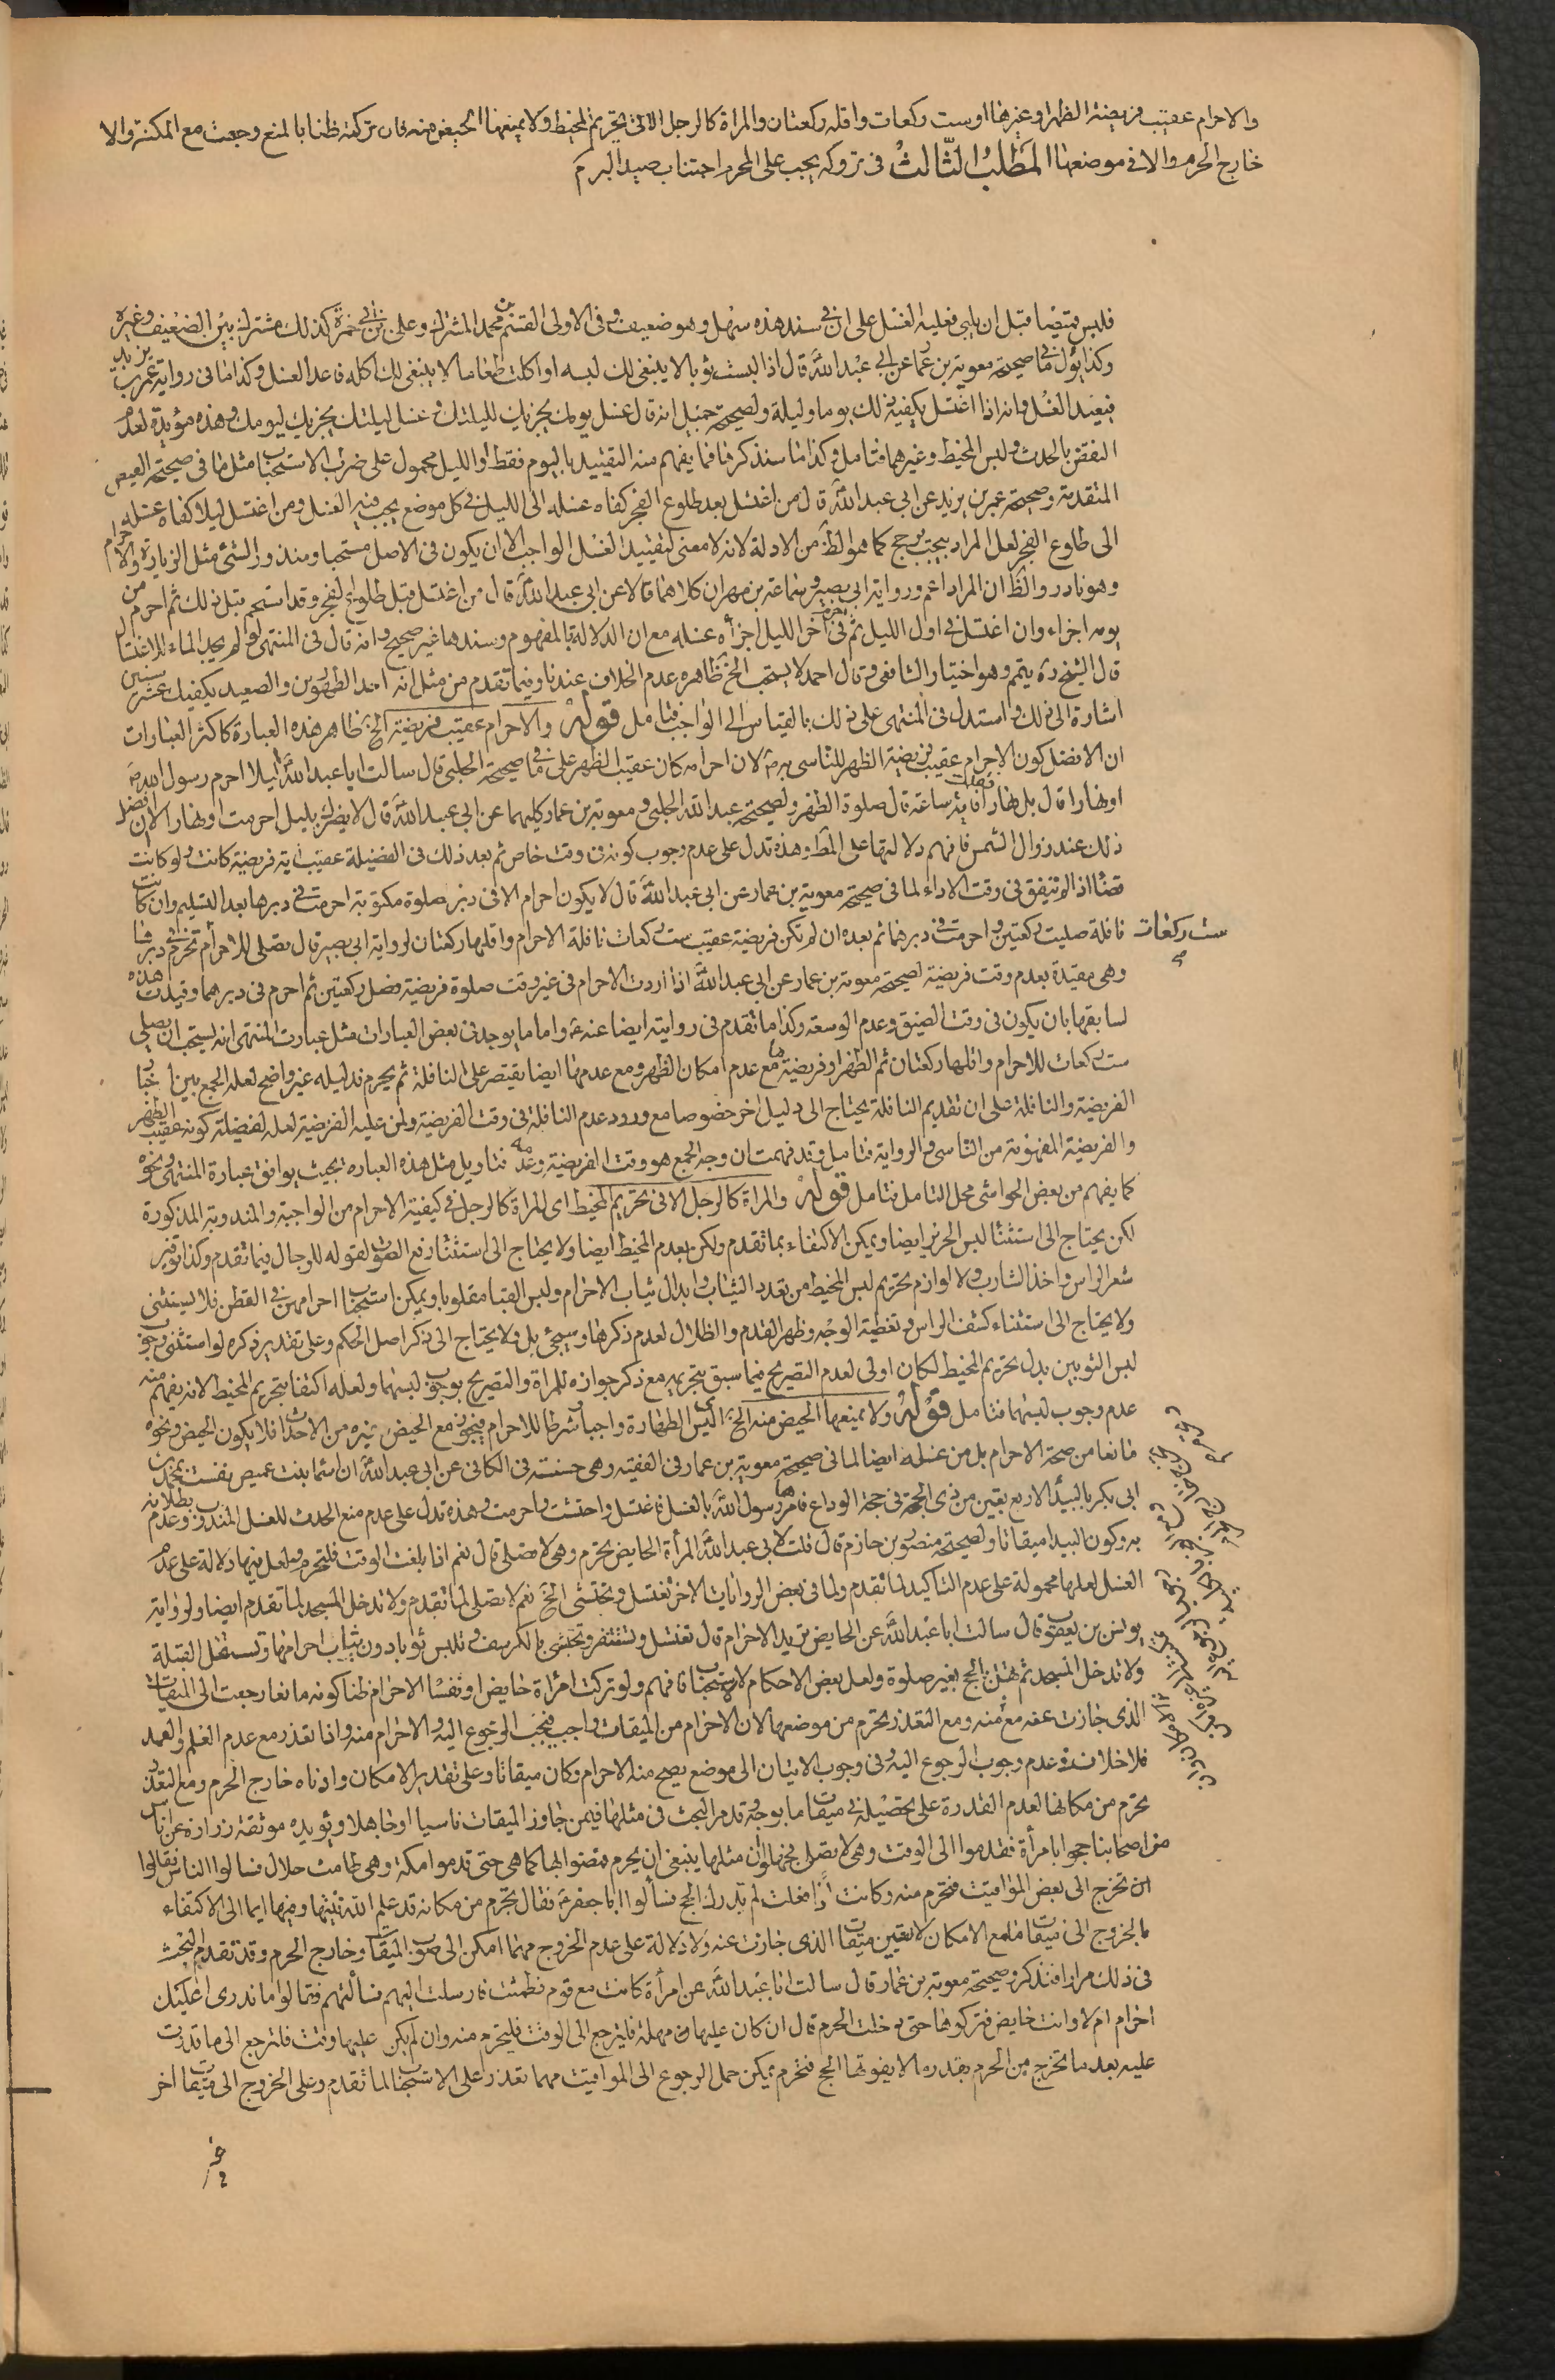 والاحرام عقيب فريضة الظهر او غيرها او ست ركعات واقله ركعتان والمراة كالرجل الا في تحريم المخيط ولا يمنعها الحيض منه فان تركته ظنا بالمنع رجعت مع المكنة والا
خارج الحرم والا في موضعها المطلب الثالث في تروكه يجب على المحرم اجتناب صيد البر
فلبس قميصا قبل ان يلبى فعليه الغسل على ان في سند هذه سهل وهو ضعيف وفى الاولى القسم بن محمد المشترك وعلى بن ابى حمزة كذلك مشترك بين الضعيف وغيره
وكذا يؤل ما في صحيحة معوية بن عمار عن ابى عبد الله قال اذا لبست ثوبا لا ينبغى لك لبسه او اكلت طعاما لا ينبغى لك اكله فاعد الغسل وكذا ما فى رواية عمر بن يزيد
فيعيد الغسل وانه اذا اغتسل يكفيه ذلك يوما وليلة ولصحيحة جميل انه قال غسل يومك يجزيك لليلتك وغسل ليلتك يجزيك ليومك وهذه مؤيدة لعدم
النقض بالحدث ولبس المخيط وغيرهما فتامل وكذا ما سنذكر فما يفهم منه التقييد باليوم فقط او الليل محمول على ضرب الاستحباب مثل ما فى صحيحة العيص
المتقدمة وصحيحة عمر بن يزيد عن ابى عبد الله قال من اغتسل بعد طلوع الفجر كفاه غسله الى الليل فى كل موضع يجب فيه الغسل ومن اغتسل ليلا كفاه غسله
الى طلوع الفجر لعل المراد بيجب يرجح كما هو الظ من الادلة لانه لا معنى لتقييد الغسل الواجب الا ان يكون فى الاصل مستحبا ومنذورا لشئ مثل الزيارة والاحرام
وهو نادر والظ ان المراد اعم ورواية ابى بصير وسماعة بن مهران كلاهما قالا عن ابى عبد الله قال من اغتسل قبل طلوع الفجر وقد استحم قبل ذلك ثم احرم من
يومه اجزاه وان اغتسل فى اول الليل ثم احرم فى اخر الليل اجزأه غسله مع ان الدلالة بالمفهوم وسندها غير صحيح وانه قال فى المنتهى لو لم يجد الماء للاغتسال
قال الشيخ ره يتمم وهو اختيار الشافعى وقال احمد لا يستحب الخ ظاهره عدم الخلاف عندنا وفيما تقدم من مثل انه احد الطهورين والصعيد يكفيك عشر سنين
اشارة الى ذلك واستدل فى المنتهى على ذلك بالقياس الى الواجب فتامل قوله والاحرام عقيب فريضة الخ ظاهر هذه العبارة كاكثر العبارات
ان الافضل كون الاحرام عقيب فريضة الظهر للتاسى به لان احرامه كان عقيب الظهر على ما فى صحيحة الحلبى قال سالت ابا عبد الله اليلا احرم رسول الله
او نهارا قال بل نهارا فقلت اية ساعة قال صلوة الظهر ولصحيحة عبد الله الحلبى ومعوية بن عمار كليهما عن ابى عبد الله قال لا يضرك بليل احرمت او نهار الا ان افضل
ذلك عند زوال الشمس فافهم دلالتها على المط وهذه تدل على عدم وجوب كونه فى وقت خاص ثم بعد ذلك فى الفضيلة عقيب اية فريضة كانت ولو كانت
قضاء اذا لم تتفق فى وقت الاداء لما فى صحيحة معوية بن عمار عن ابى عبد الله قال لا يكون احرام الا فى دبر صلوة مكتوبة احرمت فى دبرها بعد التسليم وان كانت
نافلة صليت ركعتين واحرمت فى دبرهما ثم بعده ان لم تكن فريضة عقيب ست ركعات نافلة الاحرام واقلها ركعتان لرواية ابى بصير قال تصلى للاحرام ست ركعات تحرم فى دبرها
وهى مقيدة بعدم وقت فريضة لصحيحة معوية بن عمار عن ابى عبد الله اذا اردت الاحرام فى غير وقت صلوة فريضة فصل ركعتين ثم احرم فى دبرهما وقيدت هذه
لسابقها بان يكون فى وقت الضيق وعدم الوسعة وكذا ما تقدم فى روايته ايضا عنه واما ما يوجد فى بعض العبارات مثل عبارت المنتهى انه يستحب ان يصلى
ست ركعات للاحرام واقلها ركعتان ثم الظهر او فريضة ما مع عدم امكان الظهر ومع عدمها ايضا يقتصر على النافلة ثم يحرم فدليله غير واضح لعله الجمع بين اخبار
الفريضة والنافلة على ان تقديم النافلة يحتاج الى دليل اخر خصوصا مع ورود عدم النافلة فى وقت الفريضة ولمن عليه الفريضة لعله لفضيلة كونه عقيب الظهر
والفريضة المفهومة من التاسى والرواية فتامل وقد فهمت ان وجه الجمع هو وقت الفريضة وعدمه فتاويل مثل هذه العبارة بحيث يوافق عبارة المنتهى ونحوه
كما يفهم من بعض الحواشى محل التامل فتامل قوله والمراة كالرجل الا فى تحريم المخيط اى المراة كالرجل فى كيفية الاحرام من الواجبة والمندوبة المذكورة
لكن يحتاج الى استثناء لبس الحرير ايضا ويمكن الاكتفاء بما تقدم ولكن بعدم المخيط ايضا ولا يحتاج الى استثناء رفع الصوت لقوله للرجال فيما تقدم وكذا توفير
شعر الراس واخذ الشارب ولا لوازم تحريم لبس المخيط من تعدد الثياب وابدال ثياب الاحرام ولبس القبا مقلوبا ويمكن استحباب احرامهن فى القطن فلا يستثنى
ولا يحتاج الى استثناء كشف الراس وتغطية الوجه وظهر القدم والظلال لعدم ذكرها وسيجئ بل ولا يحتاج الى ذكر اصل الحكم وعلى تقدير ذكره لو استثنى وجوب
لبس الثوبين بدل تحريم المخيط لكان اولى لعدم التصريح فيما سبق بتحريمه مع ذكر جوازه للمراة والتصريح بوجوب لبسهما ولعله اكتفا بتحريم المخيط لانه يفهم منه
عدم وجوب لبسهما فتامل قوله ولا يمنعها الحيض منه الخ اى ليس الطهارة واجبا وشرطا للاحرام فيجوز مع الحيض وغيره من الاحداث فلا يكون الحيض ونحوه
مانعا من صحة الاحرام بل من غسله ايضا لما فى صحيحة معوية بن عمار فى الفقيه وهى حسنة فى الكافى عن ابى عبد الله ان اسما بنت عميس نفست بمحمد بن
ابى بكر بالبيداء لاربع بقين من ذى الحجة فى حجة الوداع فامرها رسول الله بالغسل فاغتسل واحتشت واحرمت وهذه تدل على عدم منع الحدث للغسل المندوب وعدم بطلانه
به وكون البيدا ميقاتا ولصحيحة منصور بن حازم قال قلت لابى عبد الله المرأة الحايض تحرم وهى لا تصلى قال نعم اذا بلغت الوقت فلتحرم ولعل فيها دلالة على عدم
الغسل لعلها محمولة على عدم التاكيد لما تقدم ولما فى بعض الروايات الاخر تغتسل وتحتشى الخ نعم لا تصلى لما تقدم ولا تدخل المسجد لما تقدم ايضا ولرواية
يونس بن يعقوب قال سالت ابا عبد الله عن الحايض تريد الاحرام قال تغتسل وتستثفر وتحتشى بالكرسف وتلبس ثوبا دون ثياب احرامها وتستقبل القبلة
ولا تدخل المسجد ثم تهل بالحج بغير صلوة ولعل بعض الاحكام للاستحباب فافهم ولو تركت امرأة حايض او نفسا الاحرام ظنا كونه مانعا رجعت الى الميقات
الذى جازت عنه مع منه ومع التعذر تحرم من موضعها لان الاحرام من الميقات واجب فيجب الرجوع اليه والاحرام منه واذا تعذر مع عدم العلم والعمد
فلا خلاف فى عدم وجوب الرجوع اليه وفى وجوب الاتيان الى موضع يصح منه الاحرام وكان ميقاتا وعلى تقدير الامكان وادناه خارج الحرم ومع التعذر
تحرم من مكانها لعدم القدرة على تحصيل ميقات ما بوجه وقد مر البحث فى مثلها فيمن جاوز الميقات ناسيا او جاهلا ويؤيده موثقة زرارة عن اناس
من اصحابنا حجوا بامرأة فقدموا الى الوقت وهى لا تصلى فجهلوا ان مثلها ينبغى ان يحرم فمضوا بها كما هى حتى قدموا مكة وهى طامث حلال فسالوا الناس فقالوا
ان تخرج الى بعض المواقيت فتحرم منه وكانت اذا فعلت لم تدرك الحج فسألوا ابا جعفر فقال تحرم من مكانها قد علم الله نيتها وفيها ايما الى الاكتفاء
بالخروج الى ميقات ما مع الامكان لا تعيين ميقات الذى جازت عنه ولا دلالة على عدم الخروج مهما امكن الى صوب الميقات وخارج الحرم وقد تقدم البحث
فى ذلك مرارا فتذكر وصحيحة معوية بن عمار قال سالت ابا عبد الله عن امرأة كانت مع قوم فطمثت فارسلت اليهم فسألتهم فقالوا ما ندرى اعليك
احرام ام لا وانت حايض فتركوها حتى دخلت الحرم قال ان كان عليها مهلة فليرجع الى الوقت فليحرم منه وان لم يكن عليها وقت فلترجع الى ما قدرت
عليه بعد ما تخرج من الحرم بقدر ما لا يفوتها الحج فتحرم يمكن حمل الرجوع الى المواقيت مهما تعذر على الاستحباب لما تقدم وعلى الخروج الى ميقات اخر